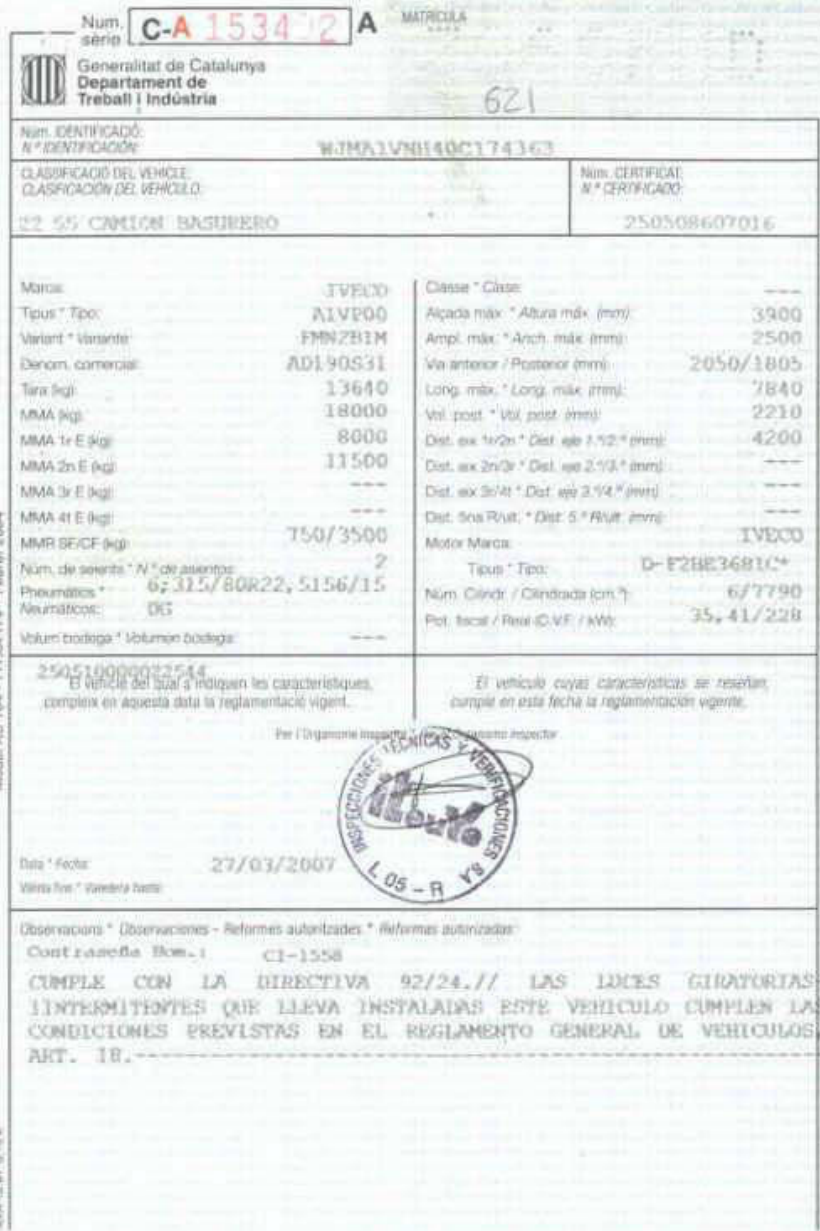 Num. sèrie C-A 153402 A MATRICULA
Generalitat de Catalunya
Departament de
Treball i Indústria
621
Núm. IDENTIFICACIÓ:
N.º IDENTIFICACIÓN: WJMA1VNH40C174363
CLASSIFICACIÓ DEL VEHICLE: Núm. CERTIFICAT:
CLASIFICACIÓN DEL VEHÍCULO: N.º CERTIFICADO:
22 55 CAMION BASURERO 250508607016
Marca: IVECO
Tipus * Tipo: A1VP00
Variant * Variante: FMN2B1M
Denom. comercial: AD190S31
Tara (kg): 13640
MMA (kg): 18000
MMA 1r E (kg): 8000
MMA 2n E (kg): 11500
MMA 3r E (kg): ---
MMA 4t E (kg): ---
MMR SF/CF (kg): 750/3500
Núm. de seients * N.º de asientos: 2
Pneumàtics * 6;315/80R22,5156/15
Neumáticos: 0G
Volum bodega * Volumen bodega: ---
Classe * Clase: ---
Alçada máx. * Altura máx. (mm): 3900
Ampl. máx. * Anch. máx. (mm): 2500
Via anterior / Posterior (mm): 2050/1805
Long. máx. * Long. máx. (mm): 7840
Vol. post. * Vol. post. (mm): 2210
Dist. eix 1r/2n * Dist. eje 1.º/2.º (mm): 4200
Dist. eix 2n/3r * Dist. eje 2.º/3.º (mm): ---
Dist. eix 3r/4t * Dist. eje 3.º/4.º (mm): ---
Dist. 5na R/ult. * Dist. 5.ª R/ult. (mm): ---
Motor Marca: IVECO
Tipus * Tipo: D-F2BE3681C*
Núm. Cilindr. / Cilindrada (cm.³): 6/7790
Pot. fiscal / Real (C.V.F. / kW): 35,41/228
250510000022544
El vehicle del qual s'indiquen les característiques,
compleix en aquesta data la reglamentació vigent.
El vehículo cuyas características se reseñan,
cumple en esta fecha la reglamentación vigente.
Per l'Organisme inspector Organismo inspector
INSPECCIONES TECNICAS Y VERIFICACIONES S.A.
L 05 - R
Data * Fecha: 27/03/2007
Vàlida fins * Valedera hasta:
Observacions * Observaciones - Reformes autoritzades * Reformas autorizadas:
Contraseña Hom.: CI-1558
CUMPLE CON LA DIRECTIVA 92/24.// LAS LUCES GIRATORIAS
IINTERMITENTES QUE LLEVA INSTALADAS ESTE VEHICULO CUMPLEN LA
CONDICIONES PREVISTAS EN EL REGLAMENTO GENERAL DE VEHICULOS,
ART. 18.---